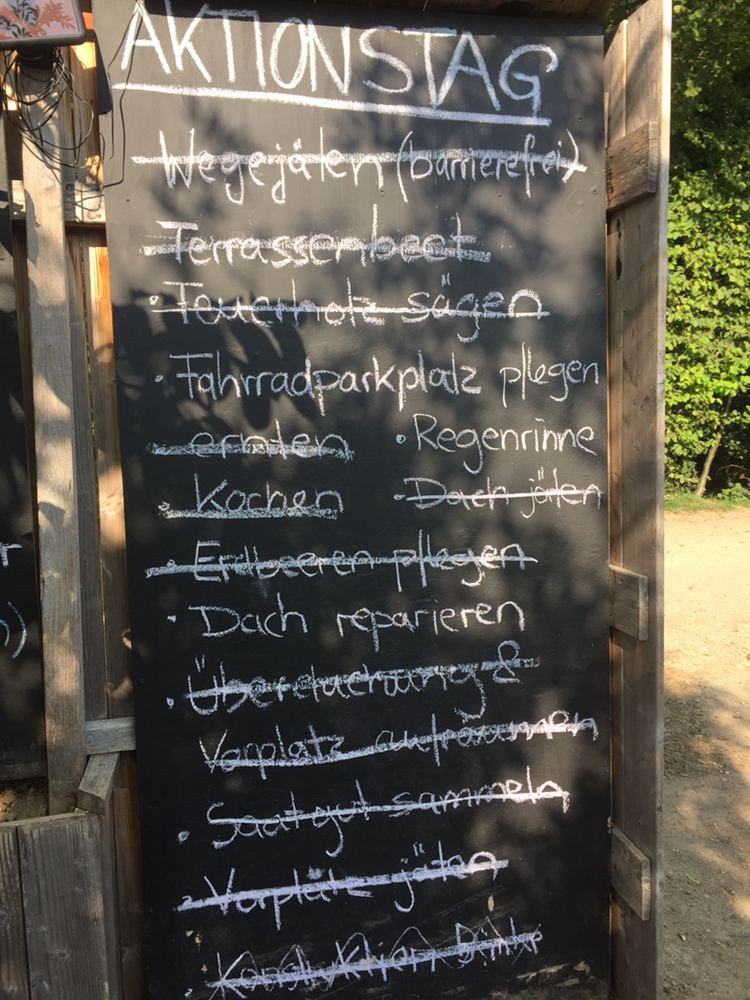 AKTIONSTAG
Wegejäten (barrierefrei)
Terrassenbeet
• Feuerholz sägen
• Fahrradparkplatz pflegen
• ernten • Regenrinne
• Kochen • Dach jäten
• Erdbeeren pflegen
• Dach reparieren
• Überdachung &
Vorplatz aufräumen
• Saatgut sammeln
• Vorplatz jäten